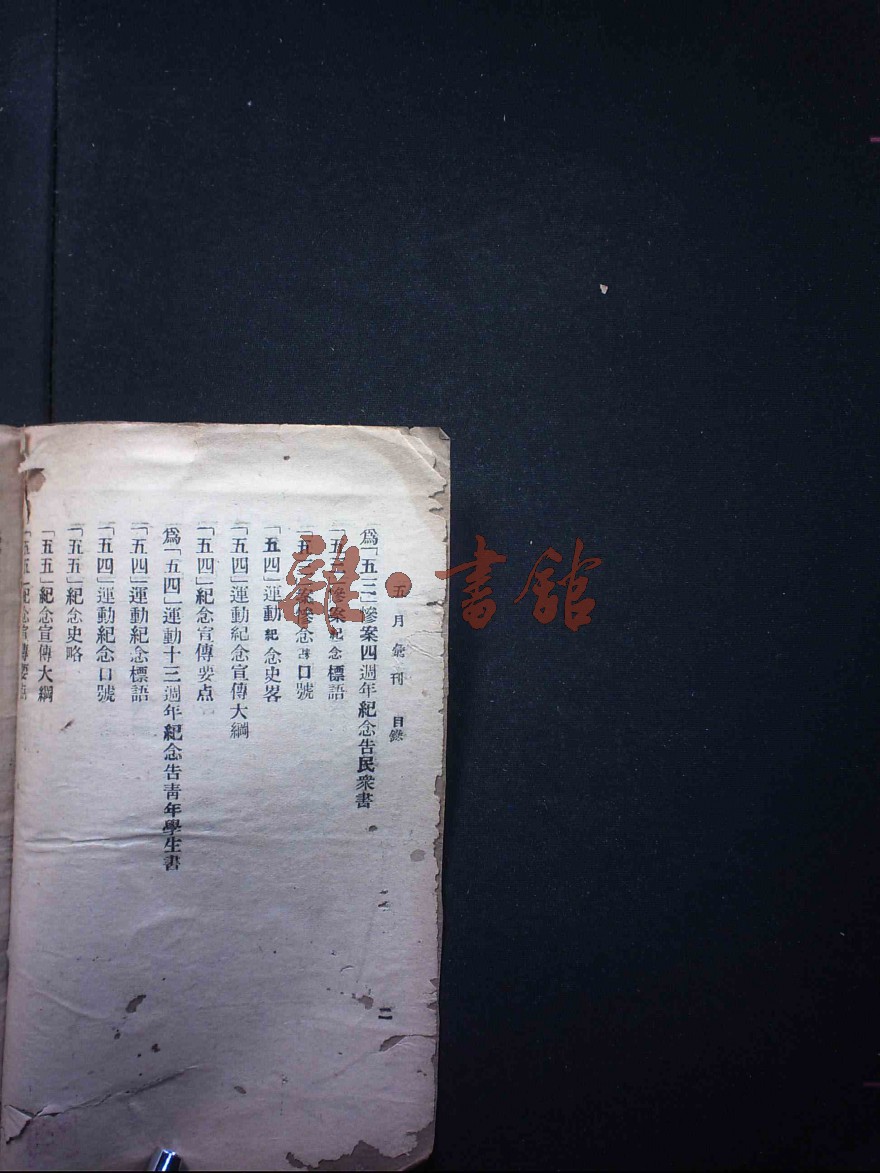 五月彙刊 目錄
二
爲「五三」慘案四週年紀念告民衆書
「五三」慘案紀念標語
「五三」案慘念口號
「五四」運動紀念史畧
「五四」運動紀念宣傳大綱
「五四」紀念宣傳要点
爲「五四」運動十三週年紀念告靑年學生書
「五四」運動紀念標語
「五四」運動紀念口號
「五五」紀念史略
「五五」紀念宣傳大綱
「五五」紀念宣傳要点
雜·書館